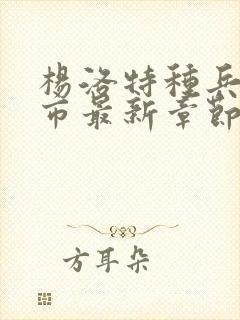 楊洛特種兵
市最新章節
方耳朵